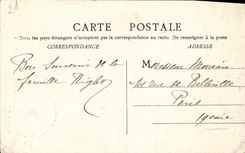 21
CARTE POSTALE
Tous les pays étrangers n'acceptent pas la correspondance au recto. (Se renseigner à la poste)
CORRESPONDANCE
ADRESSE
Bon Souvenir de la
famille
Monsieur
rue de Belleville
Paris